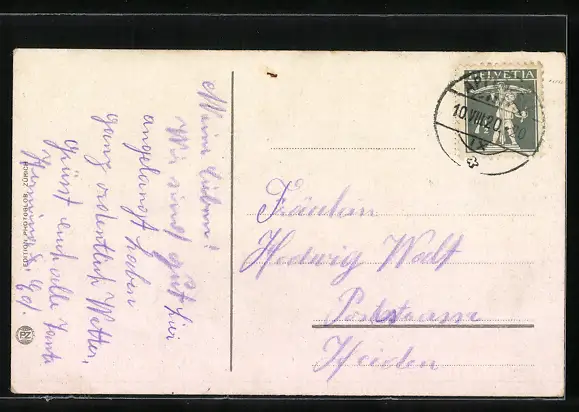 Meine Lieben!
Wir sind gut hier
angelangt haben
ganz ordentlich Wetter,
Grüsst euch alle Tante
Hermine &
EDITION PHOTOGLOB ZÜRICH
PZ
HELVETIA
7½
10.VIII.20.
XI
Fräulein
Hedwig Walt
Heiden